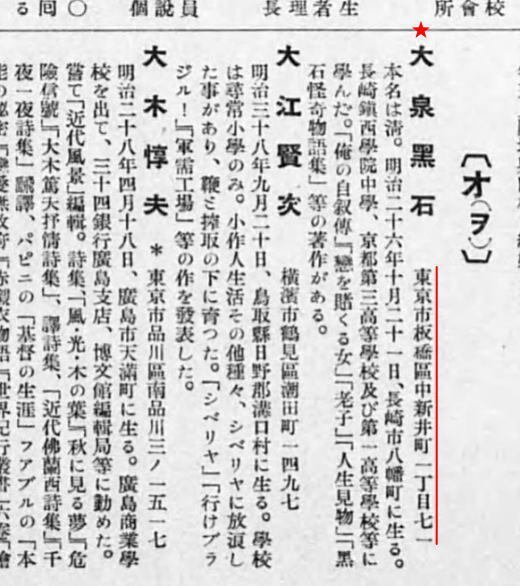 校會所
生者理長
員說個
〇回る
〔オ(ヲ)〕
大泉黑石 東京市板橋區中新井町一丁目七一
本名は淸。明治二十六年十月二十一日、長崎市八幡町に生る。
長崎鎭西學院中學、京都第三高等學校及び第一高等學校等に
學んだ。「俺の自叙傳」「戀を賭くる女」「老子」「人生見物」「黑
石怪奇物語集」等の著作がある。
大江賢次 橫濱市鶴見區潮田町一四九七
明治三十八年九月二十日、鳥取縣日野郡溝口村に生る。學校
は尋常小學のみ。小作人生活その他種々、シベリヤに放浪し
た事があり、鞭と搾取の下に育つた。「シベリヤ」「行けブラ
ジル!」「軍需工場」等の作を發表した。
大木惇夫 * 東京市品川區南品川三ノ一五一七
明治二十八年四月十八日、廣島市天滿町に生る。廣島商業學
校を出て、三十四銀行廣島支店、博文館編輯局等に勤めた。
嘗て「近代風景」編輯。詩集「風・光・木の葉」「秋に見る夢」「危
險信號」「大木篤夫抒情詩集」、譯詩集、「近代佛蘭西詩集」「千
夜一夜詩集」飜譯、パピニの「基督の生涯」フアブルの「本
能の祕密」